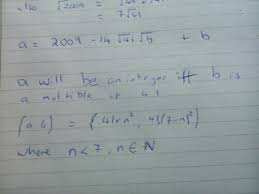 also √2009 = √49 × √41
= 7√41
a = 2009 - 14√41√b + b
a will be an integer iff b is
a multible of 41
(a b) = (41n², 41(7-n)²)
where n<7, n∈ℕ